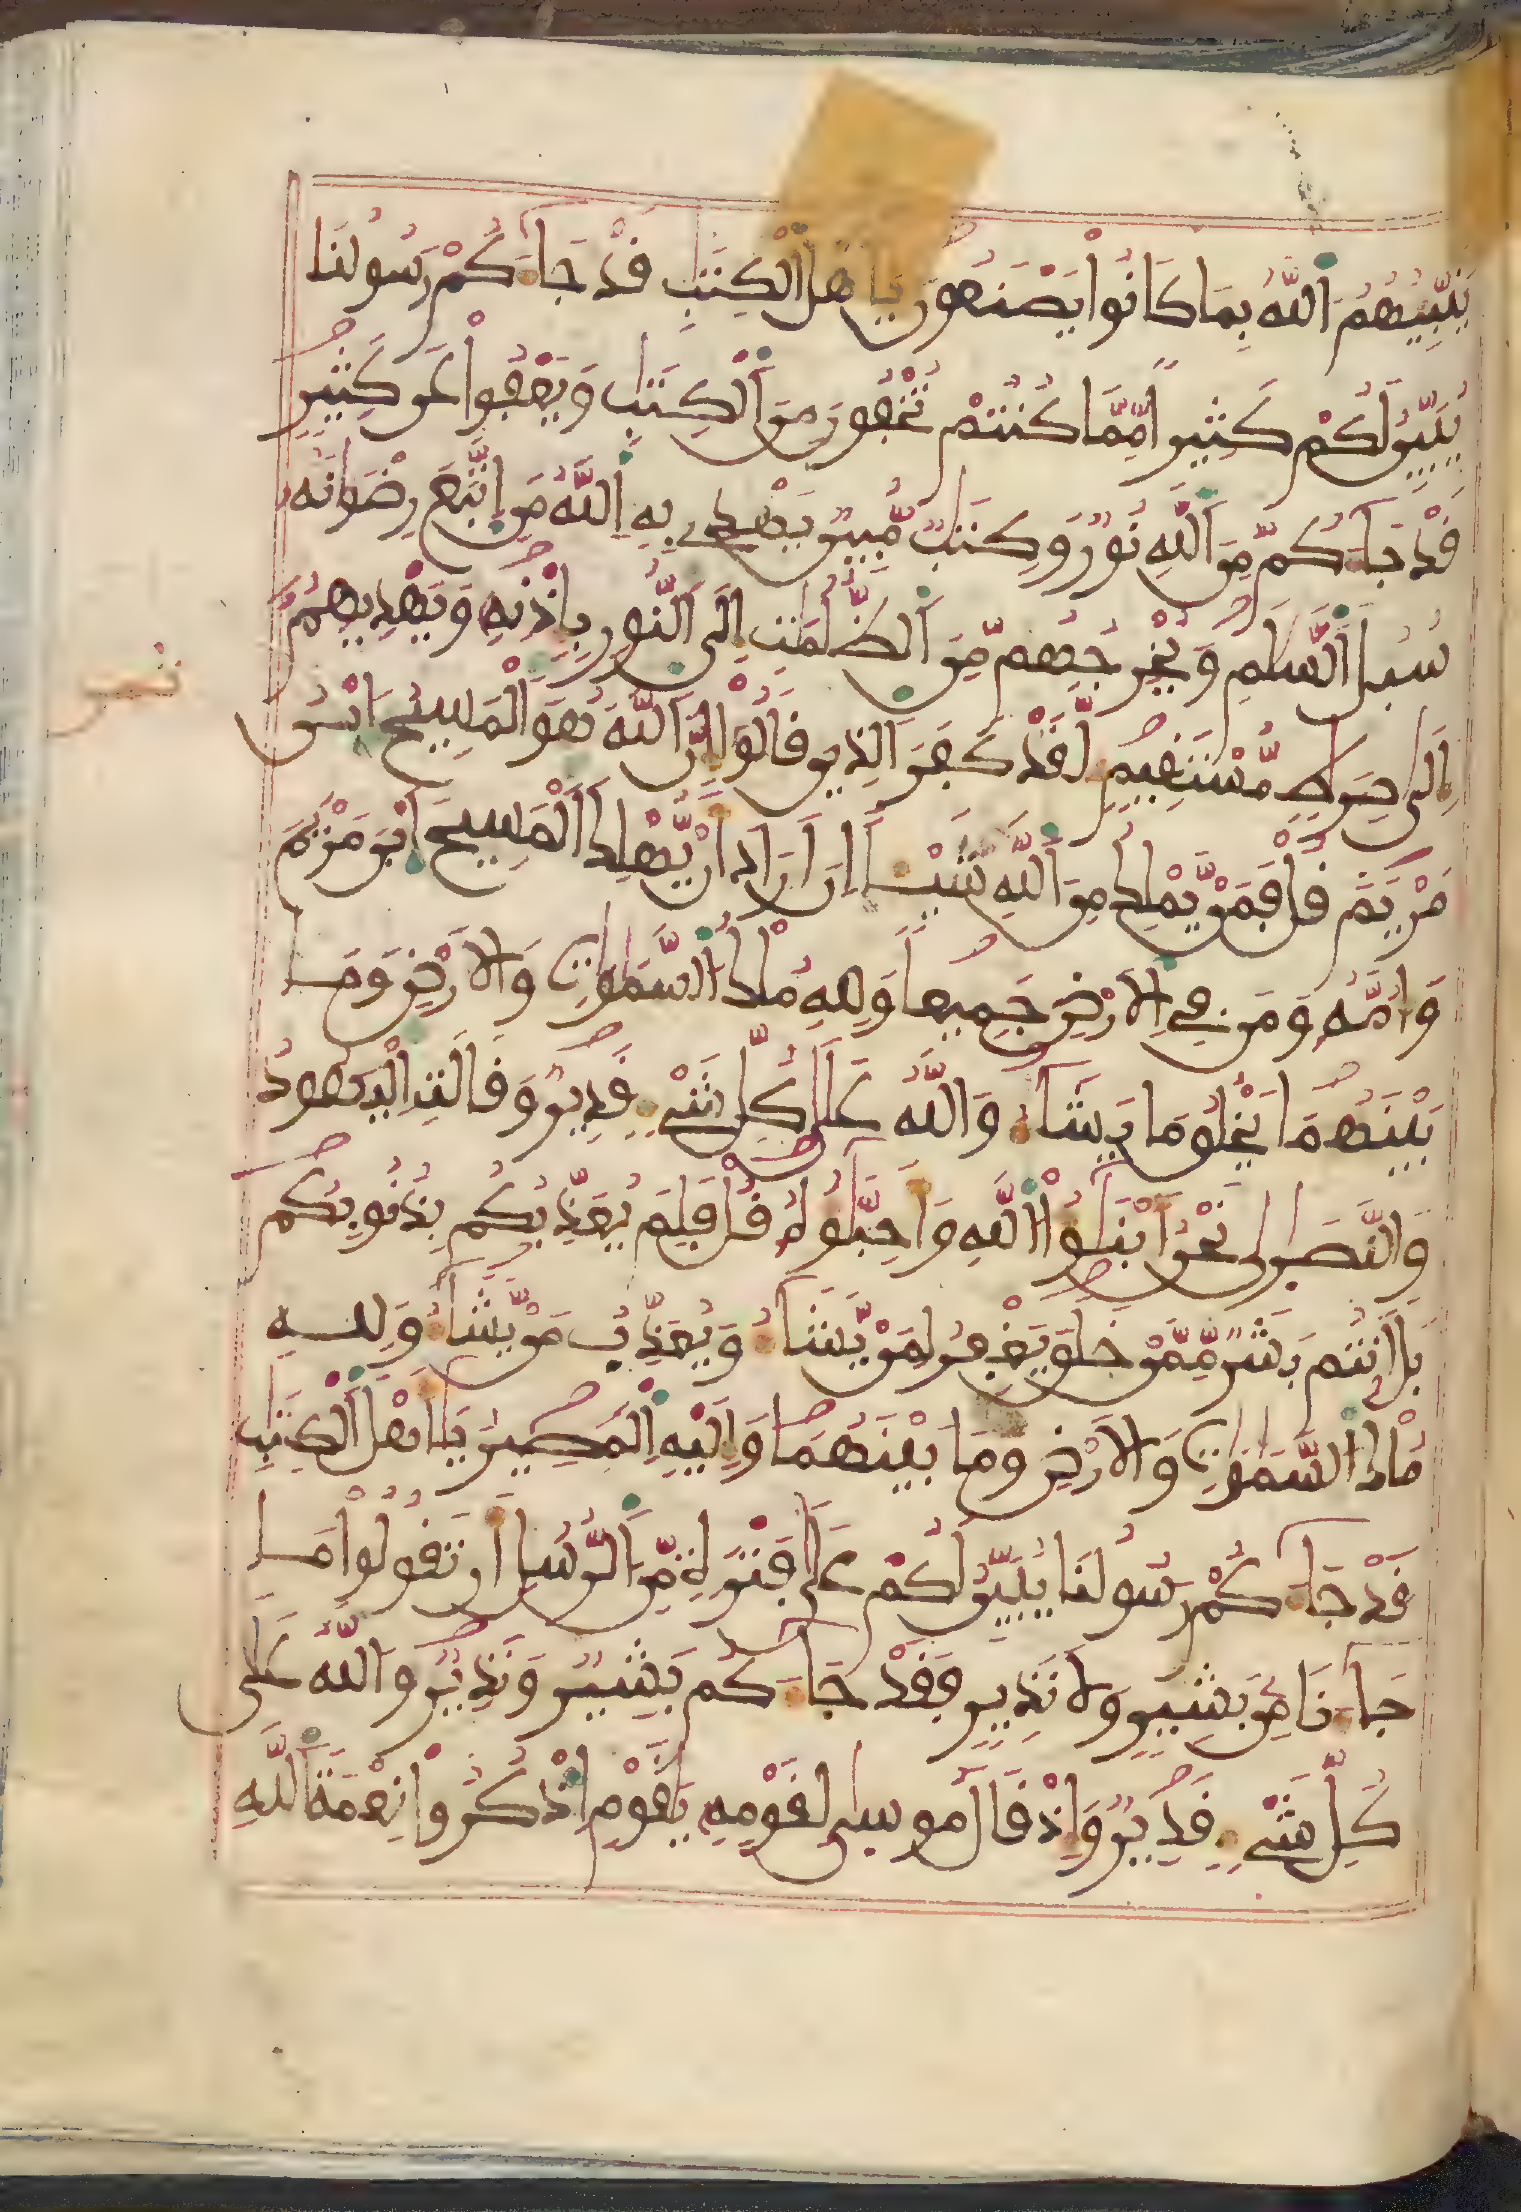 يُنَبِّيُهُمُ اَللَّهُ بِمَا كَانُواْ يَصْنَعُونَ يَٰأَهْلَ اَلْكِتَٰبِ قَدْ جَآءَكُمْ رَسُولُنَا
يُبَيِّنُ لَكُمْ كَثِيراً مِّمَّا كُنتُمْ تُخْفُونَ مِنَ اَلْكِتَٰبِ وَيَعْفُواْ عَن كَثِيرٍ
قَدْ جَآءَكُم مِّنَ اَللَّهِ نُورٌ وَكِتَٰبٌ مُّبِينٌ يَهْدِے بِهِ اِللَّهُ مَنِ اِتَّبَعَ رِضْوَٰنَهُ
سُبُلَ اَلسَّلَٰمِ وَيُخْرِجُهُم مِّنَ اَلظُّلُمَٰتِ إِلَى اَلنُّورِ بِإِذْنِهِ وَيَهْدِيهِمُ
إِلَىٰ صِرَٰطٍ مُّسْتَقِيمٍ لَّقَدْ كَفَرَ اَلذِينَ قَالُواْ إِنَّ اَللَّهَ هُوَ اَلْمَسِيحُ اُبْنُ
مَرْيَمَ قُلْ فَمَنْ يَّمْلِكُ مِنَ اَللَّهِ شَيْـًٔا إِنْ أَرَادَ أَنْ يُّهْلِكَ اَلْمَسِيحَ اَبْنَ مَرْيَمَ
وَأُمَّهُ وَمَن فِے اِلَارْضِ جَمِيعاً وَلِلهِ مُلْكُ اُلسَّمَٰوَٰتِ وَالَارْضِ وَمَا
بَيْنَهُمَا يَخْلُقُ مَا يَشَآءُ وَاللَّهُ عَلَىٰ كُلِّ شَےْءٍ قَدِيرٌ وَقَالَتِ اِلْيَهُودُ
وَالنَّصَٰرَىٰ نَحْنُ أَبْنَٰٓؤُاْ اُللَّهِ وَأَحِبَّٰٓؤُهُ قُلْ فَلِمَ يُعَذِّبُكُم بِذُنُوبِكُم
بَلَ اَنتُم بَشَرٌ مِّمَّنْ خَلَقَ يَغْفِرُ لِمَنْ يَّشَآءُ وَيُعَذِّبُ مَنْ يَّشَآءُ وَلِلهِ
مُلْكُ اُلسَّمَٰوَٰتِ وَالَارْضِ وَمَا بَيْنَهُمَا وَإِلَيْهِ اِلْمَصِيرُ يَٰأَهْلَ اَلْكِتَٰبِ
قَدْ جَآءَكُمْ رَسُولُنَا يُبَيِّنُ لَكُمْ عَلَىٰ فَتْرَةٍ مِّنَ اَلرُّسُلِ أَن تَقُولُواْ مَا
جَآءَنَا مِنۢ بَشِيرٍ وَلَا نَذِيرٍ فَقَدْ جَآءَكُم بَشِيرٌ وَنَذِيرٌ وَاللَّهُ عَلَىٰ
كُلِّ شَےْءٍ قَدِيرٌ وَإِذْ قَالَ مُوسَىٰ لِقَوْمِهِ يَٰقَوْمِ اِذْكُرُواْ نِعْمَةَ اَللَّهِ
ثمن